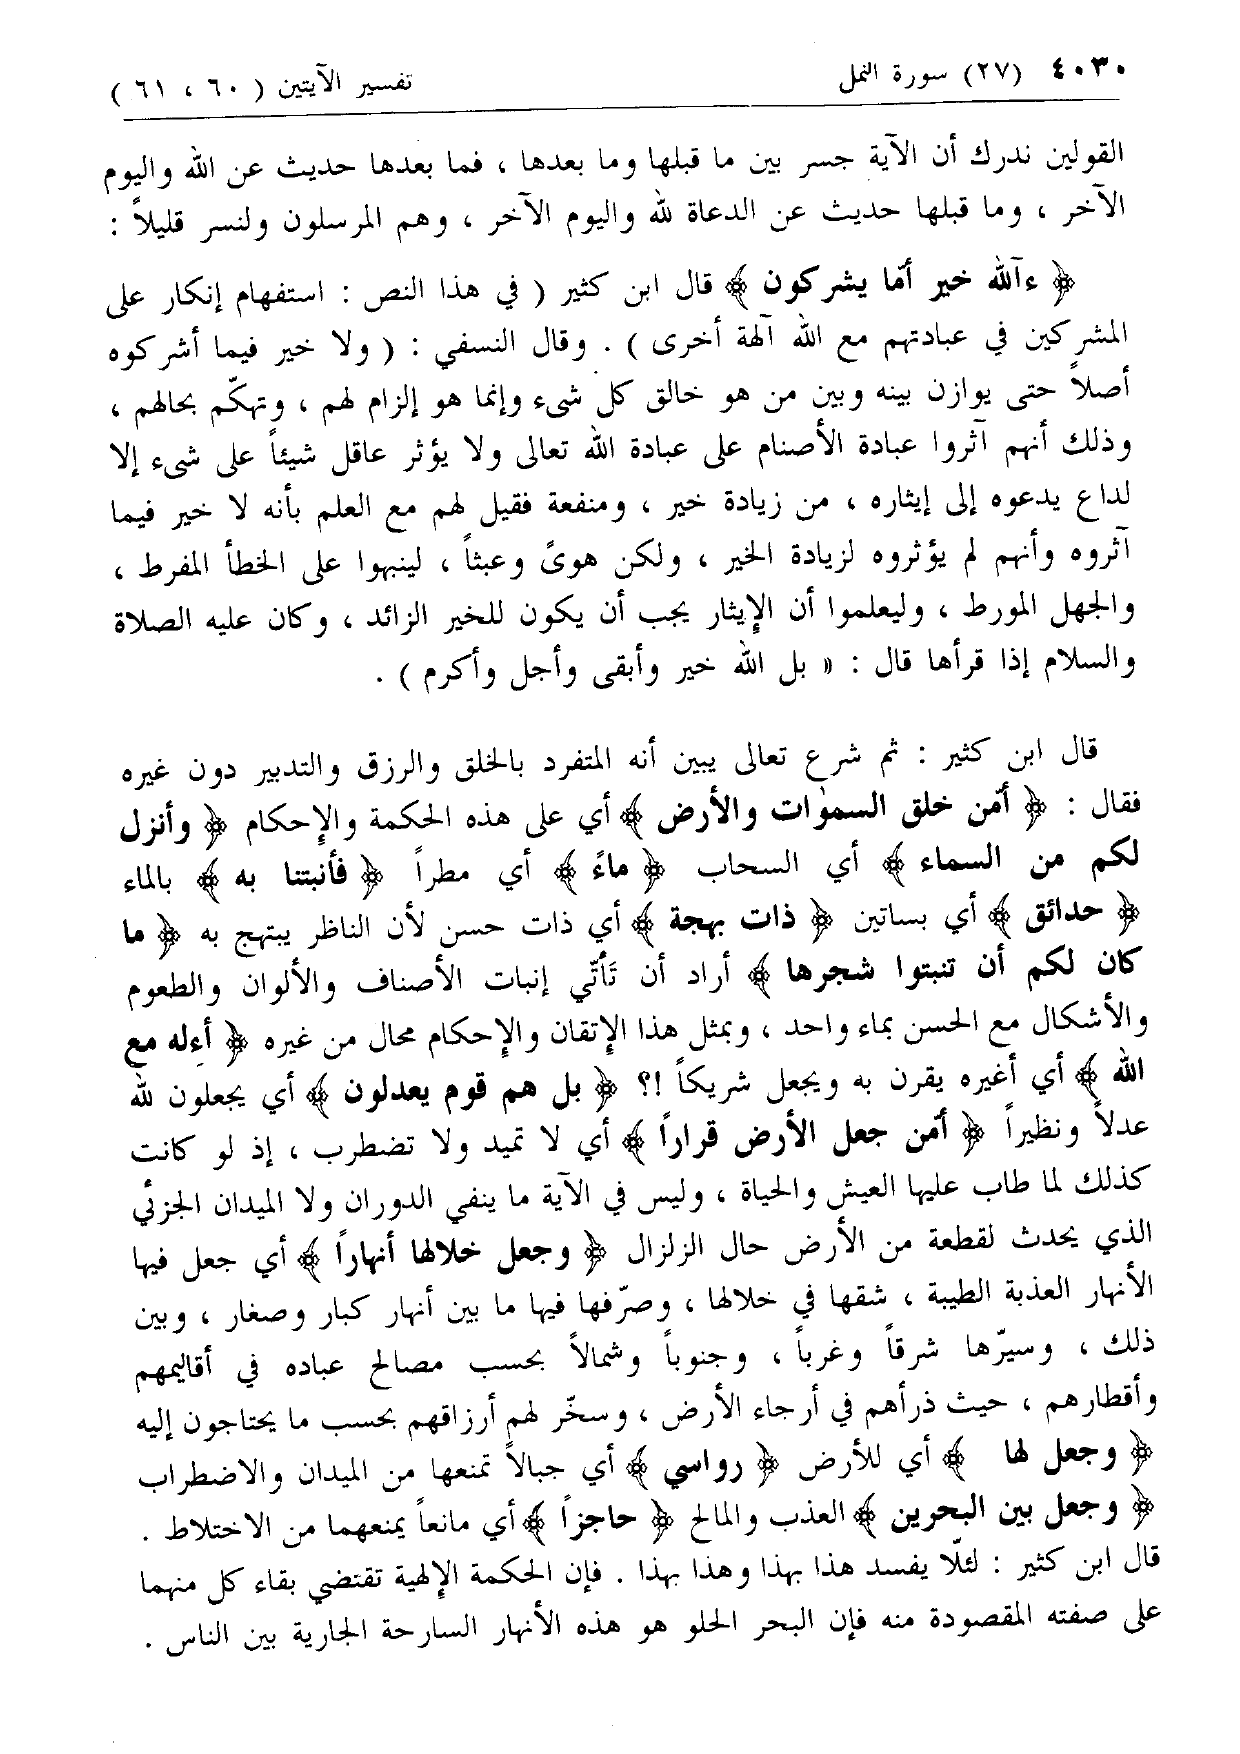 ٤٠٣٠ (٢٧) سورة النمل تفسير الآيتين ( ٦٠ ، ٦١ )
القولين ندرك أن الآية جسر بين ما قبلها وما بعدها ، فما بعدها حديث عن الله واليوم
الآخر ، وما قبلها حديث عن الدعاة لله واليوم الآخر ، وهم المرسلون ولنسر قليلاً :
﴿ ءآلله خير أمّا يشركون ﴾ قال ابن كثير ( في هذا النص : استفهام إنكار على
المشركين في عبادتهم مع الله آلهة أخرى ) . وقال النسفي : ( ولا خير فيما أشركوه
أصلاً حتى يوازن بينه وبين من هو خالق كل شىء وإنما هو إلزام لهم ، وتهكّم بحالهم ،
وذلك أنهم آثروا عبادة الأصنام على عبادة الله تعالى ولا يؤثر عاقل شيئاً على شىء إلا
لداع يدعوه إلى إيثاره ، من زيادة خير ، ومنفعة فقيل لهم مع العلم بأنه لا خير فيما
آثروه وأنهم لم يؤثروه لزيادة الخير ، ولكن هوىً وعبثاً ، لينبهوا على الخطأ المفرط ،
والجهل المورط ، وليعلموا أن الإيثار يجب أن يكون للخير الزائد ، وكان عليه الصلاة
والسلام إذا قرأها قال : « بل الله خير وأبقى وأجل وأكرم ) .
قال ابن كثير : ثم شرع تعالى يبين أنه المتفرد بالخلق والرزق والتدبير دون غيره
فقال : ﴿ أمّن خلق السمٰوات والأرض ﴾ أي على هذه الحكمة والإحكام ﴿ وأنزل
لكم من السماء ﴾ أي السحاب ﴿ ماءً ﴾ أي مطراً ﴿ فأنبتنا به ﴾ بالماء
﴿ حدائق ﴾ أي بساتين ﴿ ذات بهجة ﴾ أي ذات حسن لأن الناظر يبتهج به ﴿ ما
كان لكم أن تنبتوا شجرها ﴾ أراد أن تَأتّي إنبات الأصناف والألوان والطعوم
والأشكال مع الحسن بماء واحد ، وبمثل هذا الإتقان والإحكام محال من غيره ﴿ أءِله مع
الله ﴾ أي أغيره يقرن به ويجعل شريكاً !؟ ﴿ بل هم قوم يعدلون ﴾ أي يجعلون لله
عدلاً ونظيراً ﴿ أمّن جعل الأرض قراراً ﴾ أي لا تميد ولا تضطرب ، إذ لو كانت
كذلك لما طاب عليها العيش والحياة ، وليس في الآية ما ينفي الدوران ولا الميدان الجزئي
الذي يحدث لقطعة من الأرض حال الزلزال ﴿ وجعل خلالها أنهاراً ﴾ أي جعل فيها
الأنهار العذبة الطيبة ، شقها في خلالها ، وصرّفها فيها ما بين أنهار كبار وصغار ، وبين
ذلك ، وسيرّها شرقاً وغرباً ، وجنوباً وشمالاً بحسب مصالح عباده في أقاليمهم
وأقطارهم ، حيث ذرأهم في أرجاء الأرض ، وسخّر لهم أرزاقهم بحسب ما يحتاجون إليه
﴿ وجعل لها ﴾ أي للأرض ﴿ رواسي ﴾ أي جبالاً تمنعها من الميدان والاضطراب
﴿ وجعل بين البحرين ﴾ العذب والمالح ﴿ حاجزاً ﴾ أي مانعاً يمنعهما من الاختلاط .
قال ابن كثير : لئلّا يفسد هذا بهذا وهذا بهذا . فإن الحكمة الإلهية تقتضي بقاء كل منهما
على صفته المقصودة منه فإن البحر الحلو هو هذه الأنهار السارحة الجارية بين الناس .